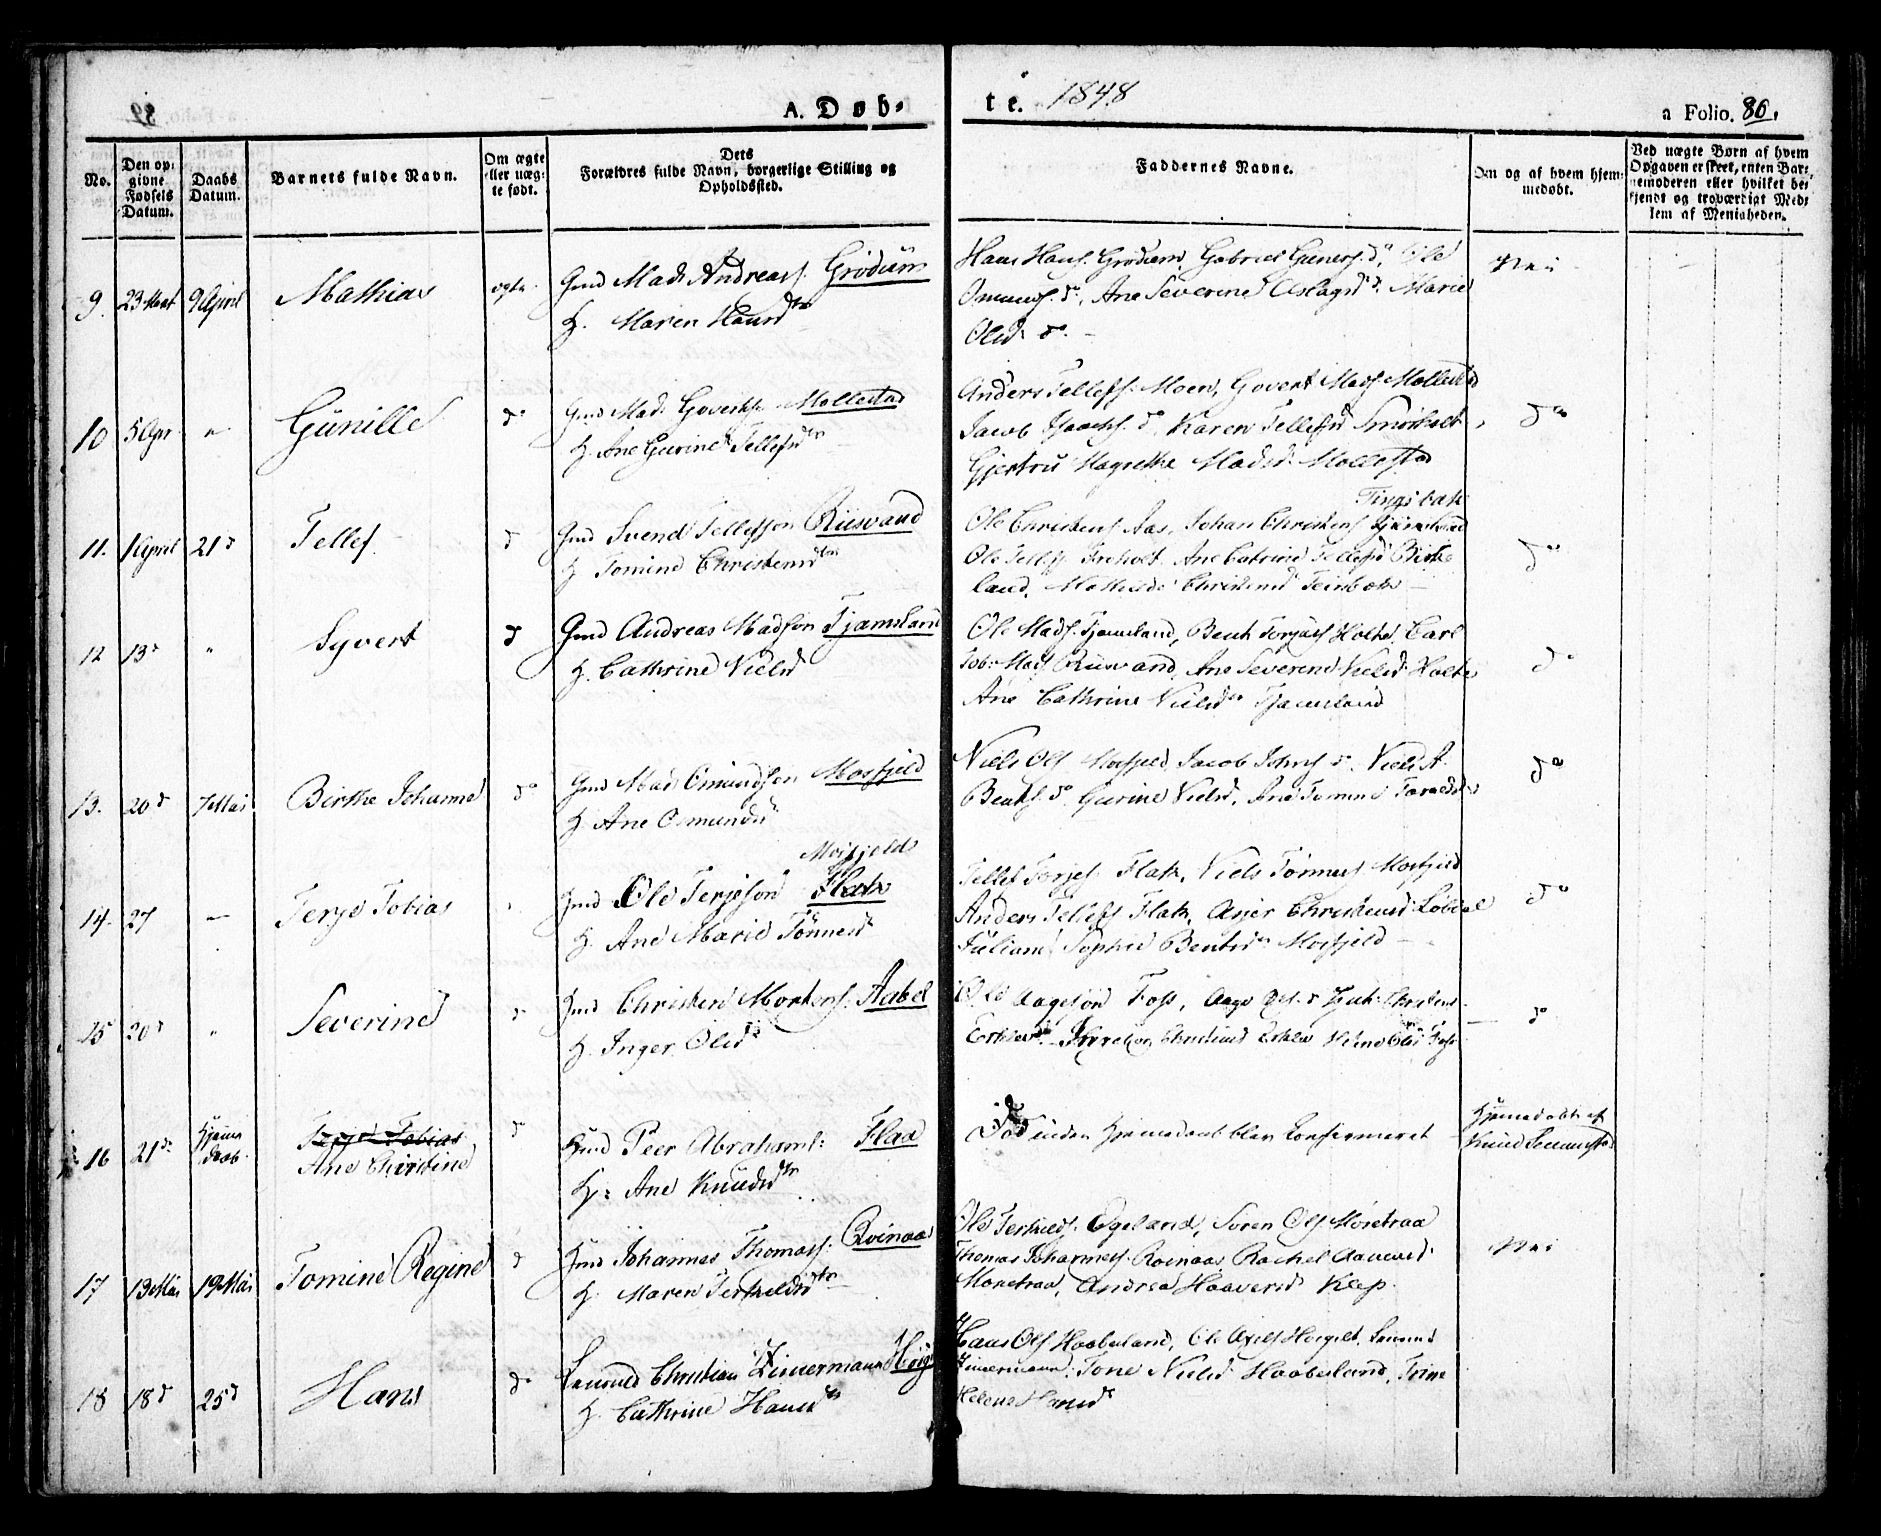 A. Døb-
te. 1848
a Folio. 86.
No.
Den op-
givne
Fødsels
Datum.
Daabs
Datum.
Barnets fulde Navn.
Om ægte
eller uæg-
te født.
Dets
Forældres fulde Navn, borgerlige Stilling og
Opholdssted.
Faddernes Navne.
Om og af hvem hjem-
medøbt.
Ved uægte Børn af hvem
Opgaven er skeet, enten Bar-
nemoderen eller hvilket be-
kjendt og troværdigt Med-
lem af Menigheden.
9. 23 Mart 9 April Mathias ægte Gmd Mads Andreass. Grødum
H. Maren Hansdtr
Hans Hans. Grødum, Gabriel Guners. do, Ole
Omunds. do, Ane Severine Aslagsd. do. Marie
Olsd. do. —
Nei
10 5 Apr. " Gunille do Gmd Mads Govertss. Mollestad
H. Ane Gurine Tellefsdtr
Anders Tellefs. Moen, Govert Mads. Mollestad
Jacob Isaacks. do, Karen Tellefsd Smørholt
Gjertru Magrethe Madsd. Mollestad
do
11. 1 April 21 d Tellef d Gmd Svend Tellefsson Riisvand
H Tomine Christensdtr
Ole Christens. Aas, Johan Christens
Ole Tellefs. Ane Catrine Tellefsd Birke
land,
do
12 13 d " Syvert d Gmd Andreas Madsson Tjamsland
H. Cathrine Nielsd
Ole Mads. Tjamsland, Bent Torjus Holte, Carl
Tob: Mads Riisvand, Ane Severine Nielsd. Holte
Ane Cathrine Nielsdtr Tjamsland
do
13. 20 d 7 Mai Birthe Johanne do Gmd Mads Omundsson Mosfjeld
H Ane Omundsd
Niels Ols Mosfjeld, Jacob Johns do. Niels A.
Bents. do. Gurine Nielsd, Ane Tomine
do
14. 27 — Terje Tobias Mosfjeld
Gmd Ole Terjeson Flak
H. Ane Marie Tønnesd
Tellef Torjes. Flak, Niels Tønnes Mosfjeld
Anders Tellefs Flak, Christensd. Løbdal
Juliane Sophie Bentsdtr Mosfjeld —
do
15 20 d " Severine d Gmd Christen Mortens. Aabel
H. Inger Olsdtr
Ole Aagesøn Foss, Aage Ols. d
do
16 21 d. Hjemme
daab. Terje Tobias
Ane Christine d Gmd Peer Abrahams: Flaa
H: Ane Knudsdtr
Død inden Hjemmedaab blev Confirmeret
Hjemmedøbt af
Knud
17 13 Mai 19 Mai Tomine Regine d Gmd Johannes Thomass: Røinaas
H. Maren Terkeldsdtr
Ole Terkelds. Egeland, Søren Ols Monetraa
Thomas Johanness. Røinaas, Rachel
Monetraa, Andrea Haaversd Klep.
Nei
18 18 d 25 d Hans do Christian Zimermann
H. Cathrine Hansdtr
Hans Ols Haabesland, Ole
Zimermann. Tone Nielsd Haabesland, Trine
Helene Hansd